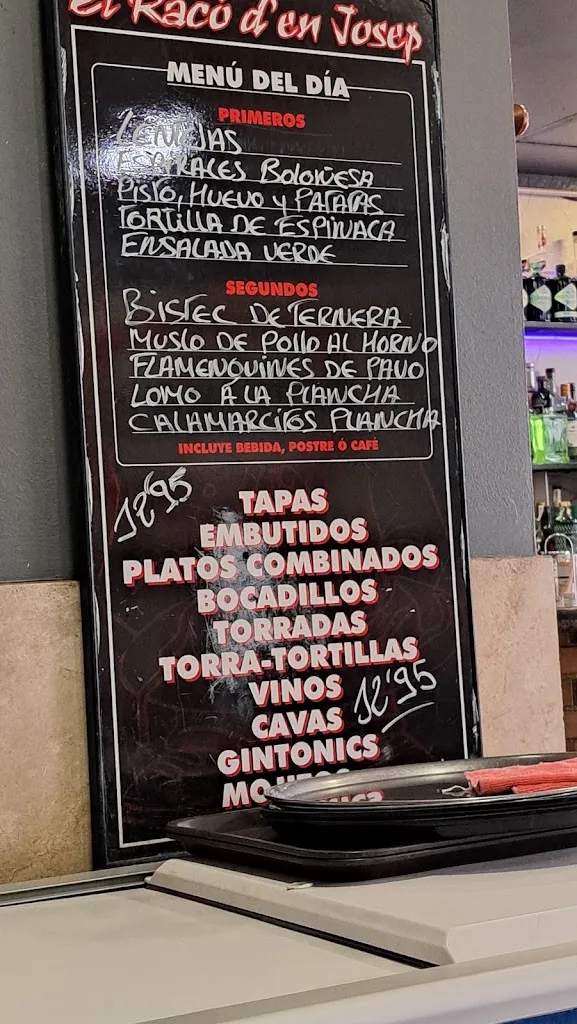 El Racó d'en Josep
MENÚ DEL DÍA
PRIMEROS
LENTEJAS
ESPIRALES BOLOÑESA
PISTO, HUEVO Y PATATAS
TORTILLA DE ESPINACA
ENSALADA VERDE
SEGUNDOS
BISTEC DE TERNERA
MUSLO DE POLLO AL HORNO
FLAMENQUINES DE PAVO
LOMO A LA PLANCHA
CALAMARCITOS PLANCHA
INCLUYE BEBIDA, POSTRE Ó CAFÉ
12'95
TAPAS
EMBUTIDOS
PLATOS COMBINADOS
BOCADILLOS
TORRADAS
TORRA-TORTILLAS
VINOS
12'95
CAVAS
GINTONICS